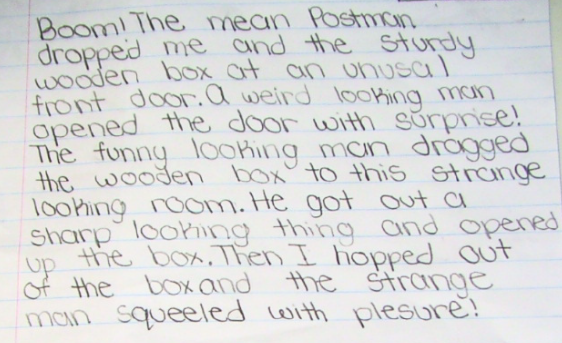 Boom! The mean Postman
dropped me and the sturdy
wooden box at an unusal
front door. A weird looking man
opened the door with surprise!
The funny looking man dragged
the wooden box to this strange
looking room. He got out a
sharp looking thing and opened
up the box. Then I hopped out
of the box and the strange
man squeeled with plesure!